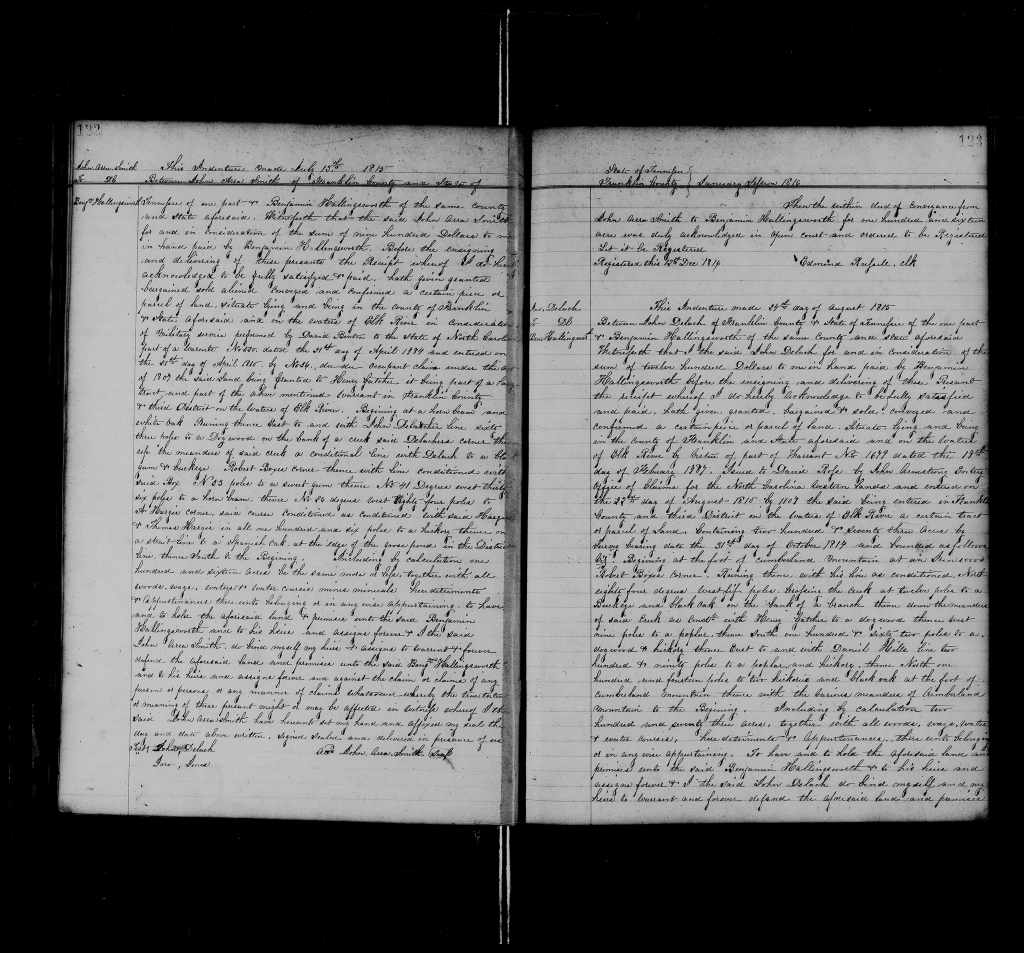 122
John Area Smith
To Db
Benjn Hallingsworth
This Indenture made July 15th 1815
Between John Area Smith of Franklin County and State of
Tennessee of one part & Benjamin Hallingsworth of the same county
and State aforesaid. Witnesseth that the said John Area Smith
for and in consideration of the sum of nine hundred Dollars to me
in hand paid by Benjamin Hallingsworth. Before the ensigning
and delivering of these presents the Receipt whereof I do hereby
acknowledge to be fully satisfied & paid. hath given granted
bargained sold aliened conveyed and confirmed a certain piece or
parcel of land, situate lying and being in the county of Franklin
& State aforesaid and on the waters of Elk River in consideration
of Military service performed by David to the State of North Carolina
part of a Warrant No dated the day of April and entered on
the day of April by No occupant claim under the act
of 1807 the said Land being granted to Henry it being part of a
tract and part of the above mentioned Warrant in Franklin County
& third District on the Waters of Elk River. Beginning at a horn beam and
white oak Runing thence East to and with John line sixty
three poles to a Dogwood on the bank of a creek said corner then
up the meanders of said creek a conditional line with Delach to a
gum & buckeye Robert Boyce corner thence with his conditioned
said N 53 poles to a sweet gum thence No 41 Degrees west thirty
six poles to a horn beam thence No 80 degrees west Eighty four poles to
A Hargis corner said course conditioned as conditioned with said Hargis
& Thomas Hargis in all one hundred and six poles to a hickory thence on
a strait line to a Spanish oak at the edge of the in the District
line thence South to the Beginning. Including by calculation one
hundred and sixteen acres be the same more or less, together with all
woods, ways, waters & water courses mines minerals hereditaments
& Appurtenances there unto belonging or in any wise appurtaining. to have
and to hold the aforesaid land & premises unto the said Benjamin
Hallingsworth and to his heirs and assigns forever & I the said
John Area Smith. do bind myself my heirs & assigns to warrent & forever
defend the aforesaid land and premises unto the said Benjn Hallingsworth
and to his heirs and assigns forever and against the claim or claims of any
person or persons, or any manner of claims whatsoever whereby the true intent
& meaning of these present might or may be affected in witness whereof I the
said John Area Smith have hereunto set my hand and affixed my seal the
day and date above written. Signed Sealed and delivered in presence of us
Test John Delach
John Area Smith Seal
123
State of Tennessee
Franklin County } Session 1816
Then the within deed of conveyance from
John Area Smith to Benjamin Hallingsworth for one hundred and sixteen
acres was duly acknowledged in open court and ordered to be Registered
Let it be Registered
Registered this 12th Dec 1816 Edmund Russell, clk
Jno. Delach
To Db
Benn Hallingsworth
This Indenture made 24th day of August 1815
Between John Delach of Franklin County & State of Tennessee of the one part
& Benjamin Hallingsworth of the same county and state aforesaid
Witnesseth that I the said John Delach for and in consideration of the
sum of twelve hundred Dollars to me in hand paid by Benjamin
Hallingsworth before the ensigning and delivering of these Presents
the receipt whereof I do hereby acknowledge to be fully satisfied
and paid, hath given granted. bargained & sold, conveyed and
confirmed a certain piece or parcel of land. Situate lying and being
in the county of Franklin and State aforesaid and on the waters
of Elk River by virtue of part of Warrant No 1679 dated the 19th
day of February 1887. Issued to David Rofs by John Armstrong Entry
Officer of Claims for the North Carolina Western Lands and entered on
the 22nd day of August 1815 by 1807 the said being entered in Franklin
County and third District on the Waters of Elk River a certain tract
or parcel of Land Containing Two hundred & Seventy three Acres by
Survey bearing date the 31st day of October 1814 and bounded as follows
Beginning at the foot of cumberland mountain at an Ironwood
Robert Boyce corner. Runing thence with his line as conditioned North
eighty four degrees West fifty poles. Crossing the creek at twelve poles to a
Buckeye and black oak on the bank of a branch thence down the meanders
of said creek as with Henry Gatches to a dogwood thence west
nine poles to a poplar thence South one hundred & Sixty two poles to a
dogwood & hickory thence East to and with Daniel Hills line two
hundred & ninety poles to a poplar and hickory, thence North one
hundred and fourteen poles to two hickories and black oak at the foot of
cumberland mountain thence with the various meanders of Cumberland
mountain to the Begining. Including by calculation two
hundred and seventy three acres, together with all woods, ways, waters
& water courses, hereditaments & Appurtenances, there unto belonging
or in any wise appurtaining. To have and to hold the aforesaid land and
premises unto the said Benjamin Hallingsworth & to his heirs and
assigns forever & I the said John Delach do bind myself and my
heirs to warrent and forever defend the aforesaid land and premises